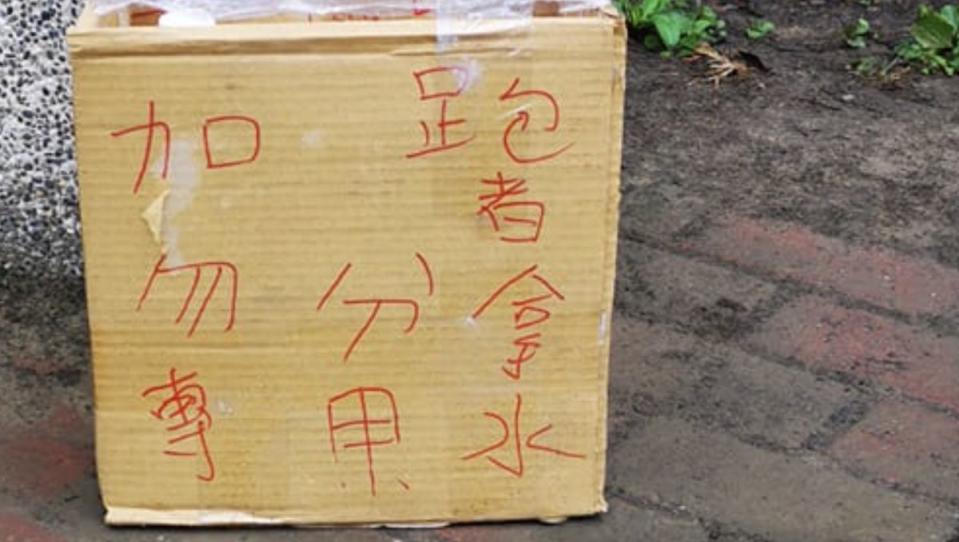 跑者拿水
分
加勿專